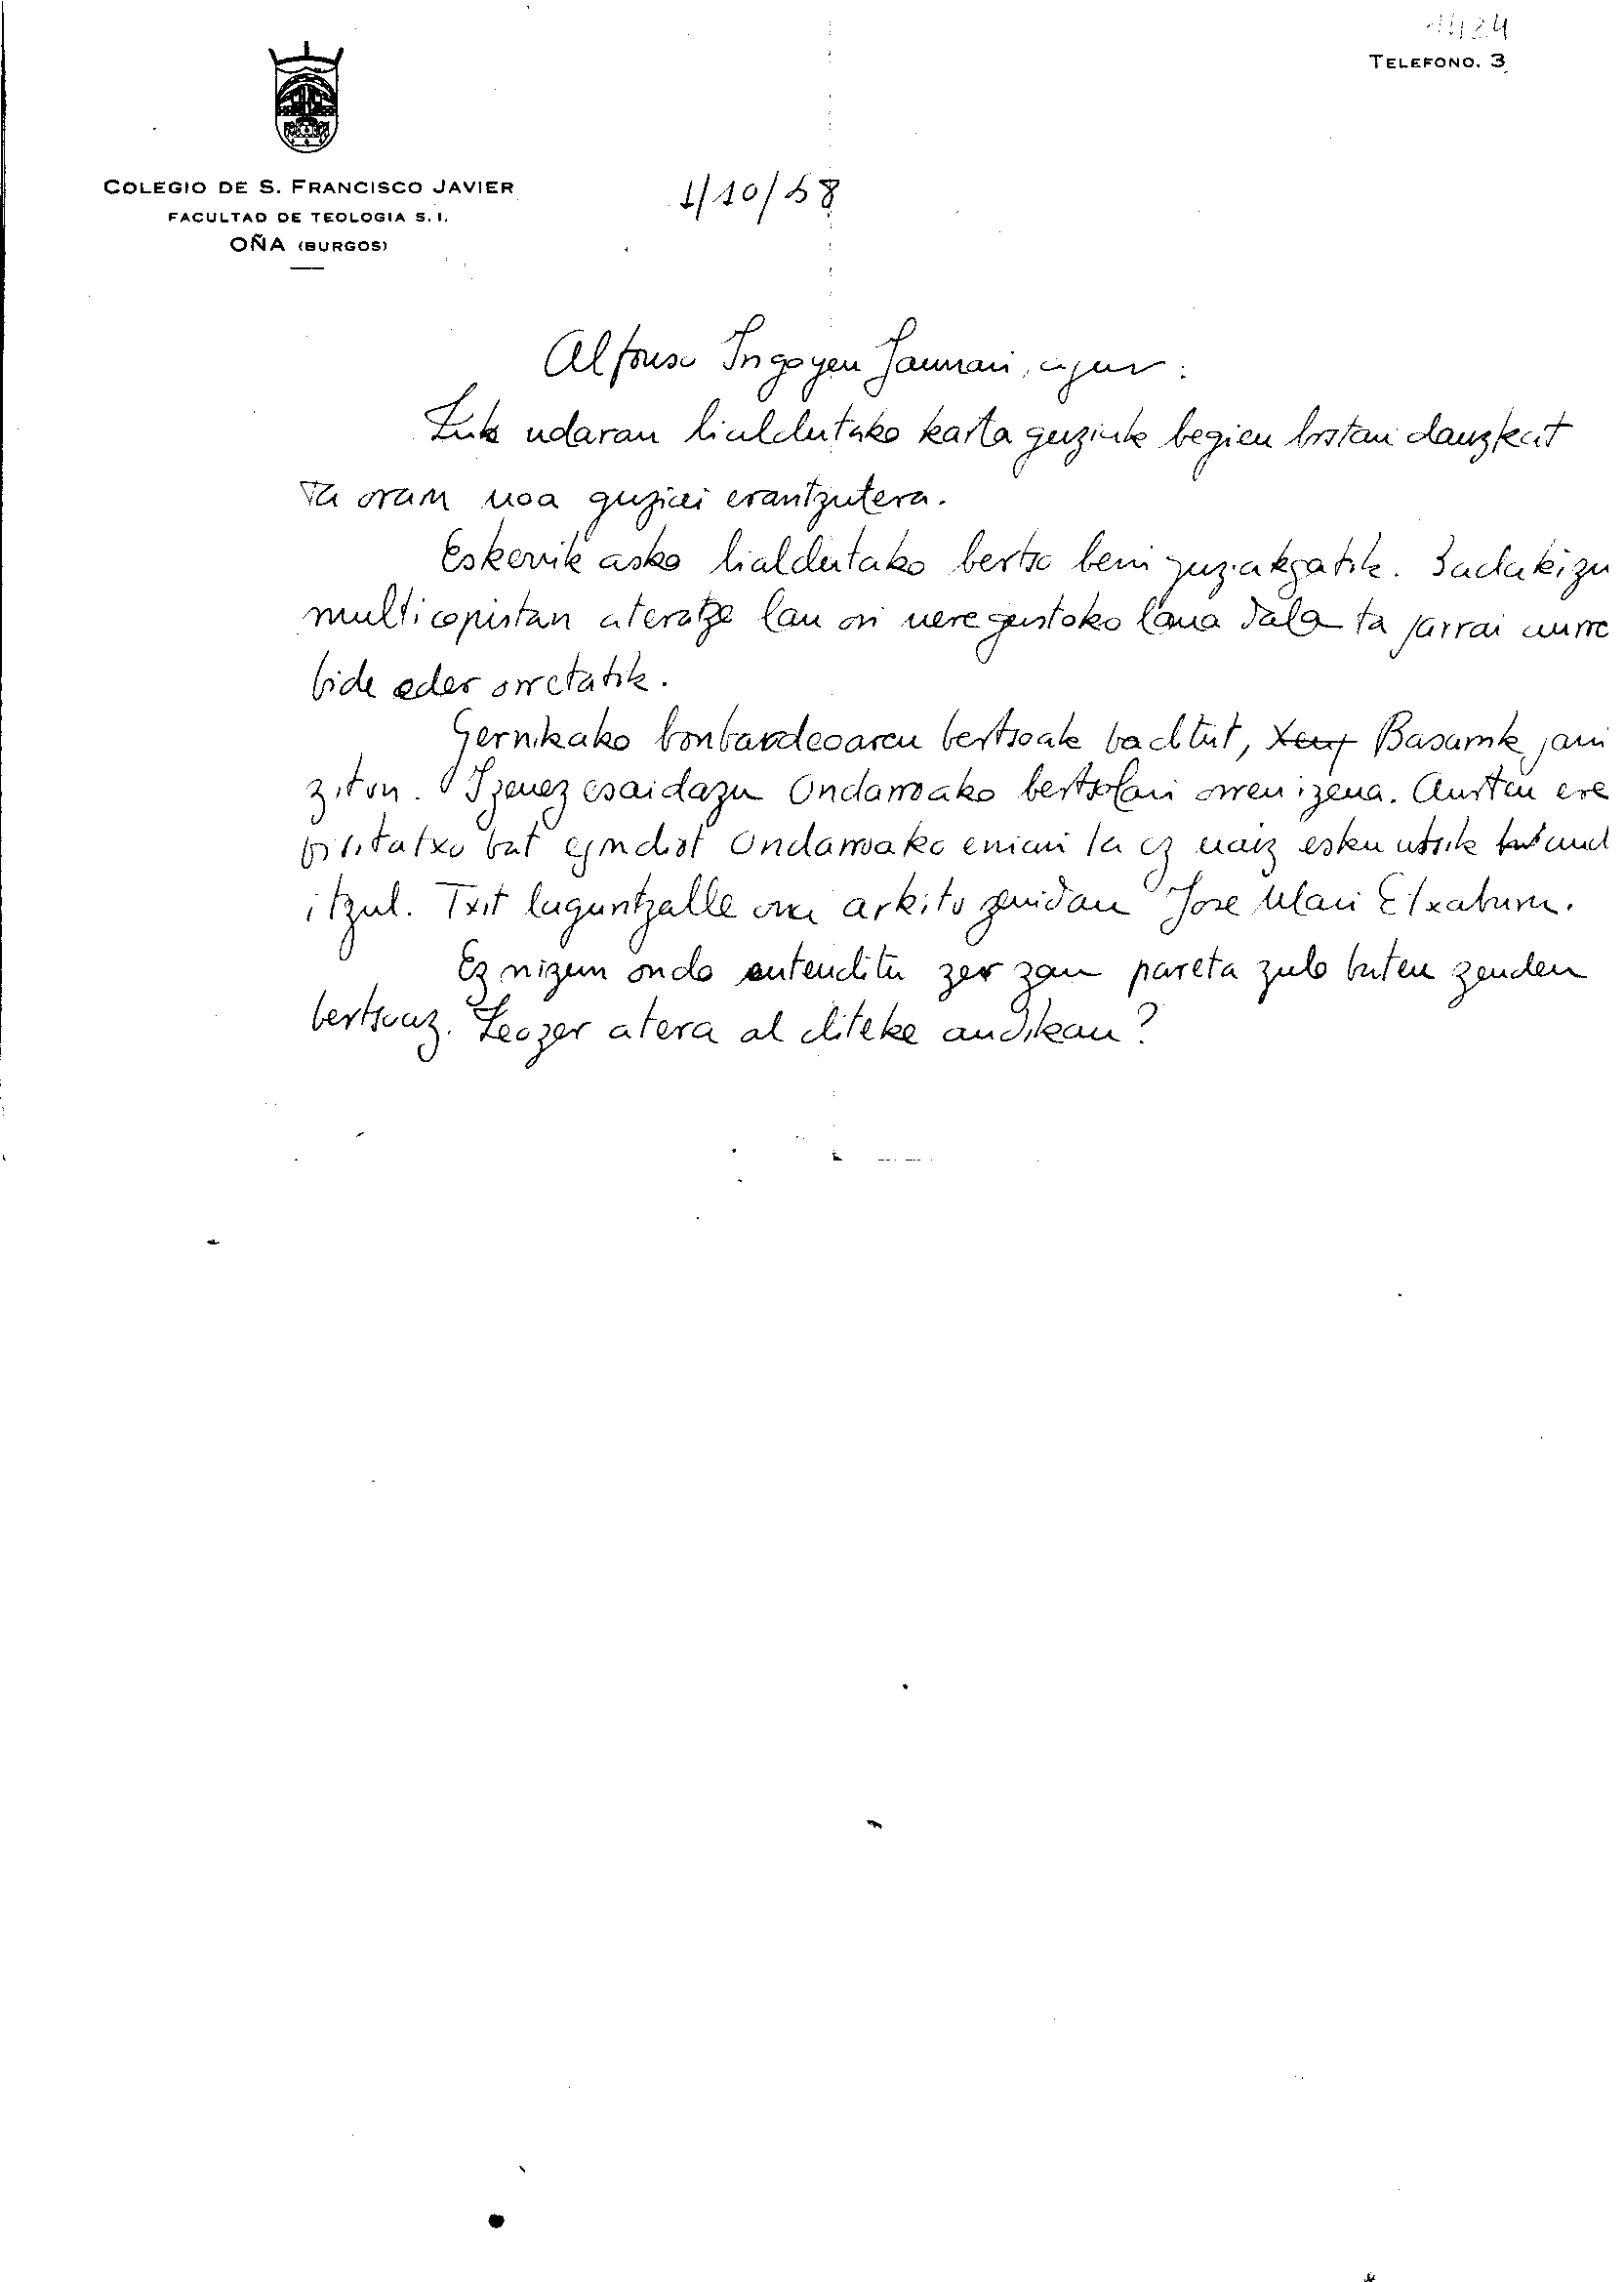 1424
TELEFONO. 3
COLEGIO DE S. FRANCISCO JAVIER
FACULTAD DE TEOLOGIA S. I.
OÑA (BURGOS)
1/10/58
Alfonso Irigoyen Jaunari, agur:
Zuk udaran bialdutako karta guziak begien bistan dauzkat
ta orain noa guziai erantzutera.
Eskerrik asko bialdutako bertso berri guziakgatik. Badakizu
multicopistan ateratze lan ori nere gustoko lana dala ta jarrai aurre
bide eder orretatik.
Gernikako bonbardeoaren bertsoak baditut, Basarrik jarri
zitun. Izenez esaidazu Ondarroako bertsolari orren izena. Aurten ere
bisitatxo bat egin diot Ondarroako erriari ta ez naiz esku utsik
itzul. Txit laguntzalle ona arkitu zenidan Jose Mari Etxaburu.
Ez nizun ondo entenditu zer zan pareta zulo baten zeuden
bertsoaz. Zeozer atera al diteke andikan?